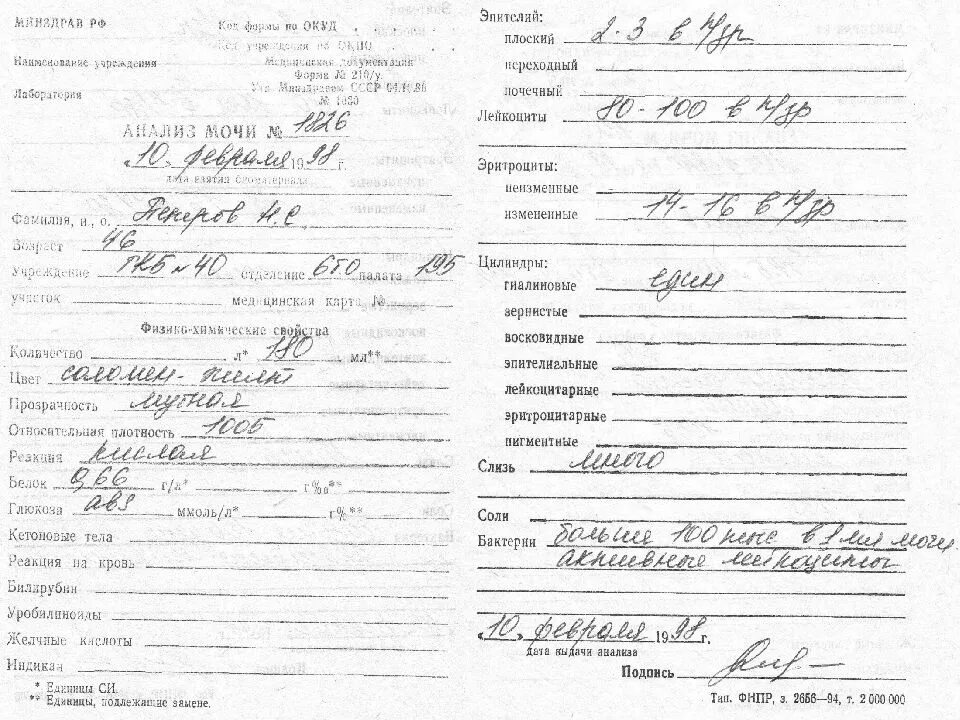 МИНЗДРАВ РФ
Код формы по ОКУД
Код учреждения по ОКПО
Наименование учреждения
Медицинская документация
Форма № 210/у.
Утв. Минздравом СССР 04.10.80
Лаборатория
№ 1030
АНАЛИЗ МОЧИ № 1826
"10" февраля 1998 г.
дата взятия биоматериала
Фамилия, и., о. Петров Н.С
Возраст 46
Учреждение ГКБ №40 отделение 6ТО палата 195
участок медицинская карта №
Физико-химические свойства
Количество л* 180 мл**
Цвет соломен-желт
Прозрачность мутная
Относительная плотность 1005
Реакция кислая
Белок 0,66 г/л* г‰**
Глюкоза abs ммоль/л* г%**
Кетоновые тела
Реакция на кровь
Билирубин
Уробилиноиды
Желчные кислоты
Индикан
* Единицы СИ.
** Единицы, подлежащие замене.
Эпителий:
плоский 2-3 в п/зр
переходный
почечный
Лейкоциты 80-100 в п/зр
Эритроциты:
неизменные
измененные 14-16 в п/зр
Цилиндры:
гиалиновые един
зернистые
восковидные
эпителиальные
лейкоцитарные
эритроцитарные
пигментные
Слизь много
Соли
Бактерии больше 100 тыс в 1 мл мочи
активные лейкоциты
"10" февраля 1998 г.
дата выдачи анализа
Подпись
Тип. ФНПР, з. 2656—94, т. 2 000 000